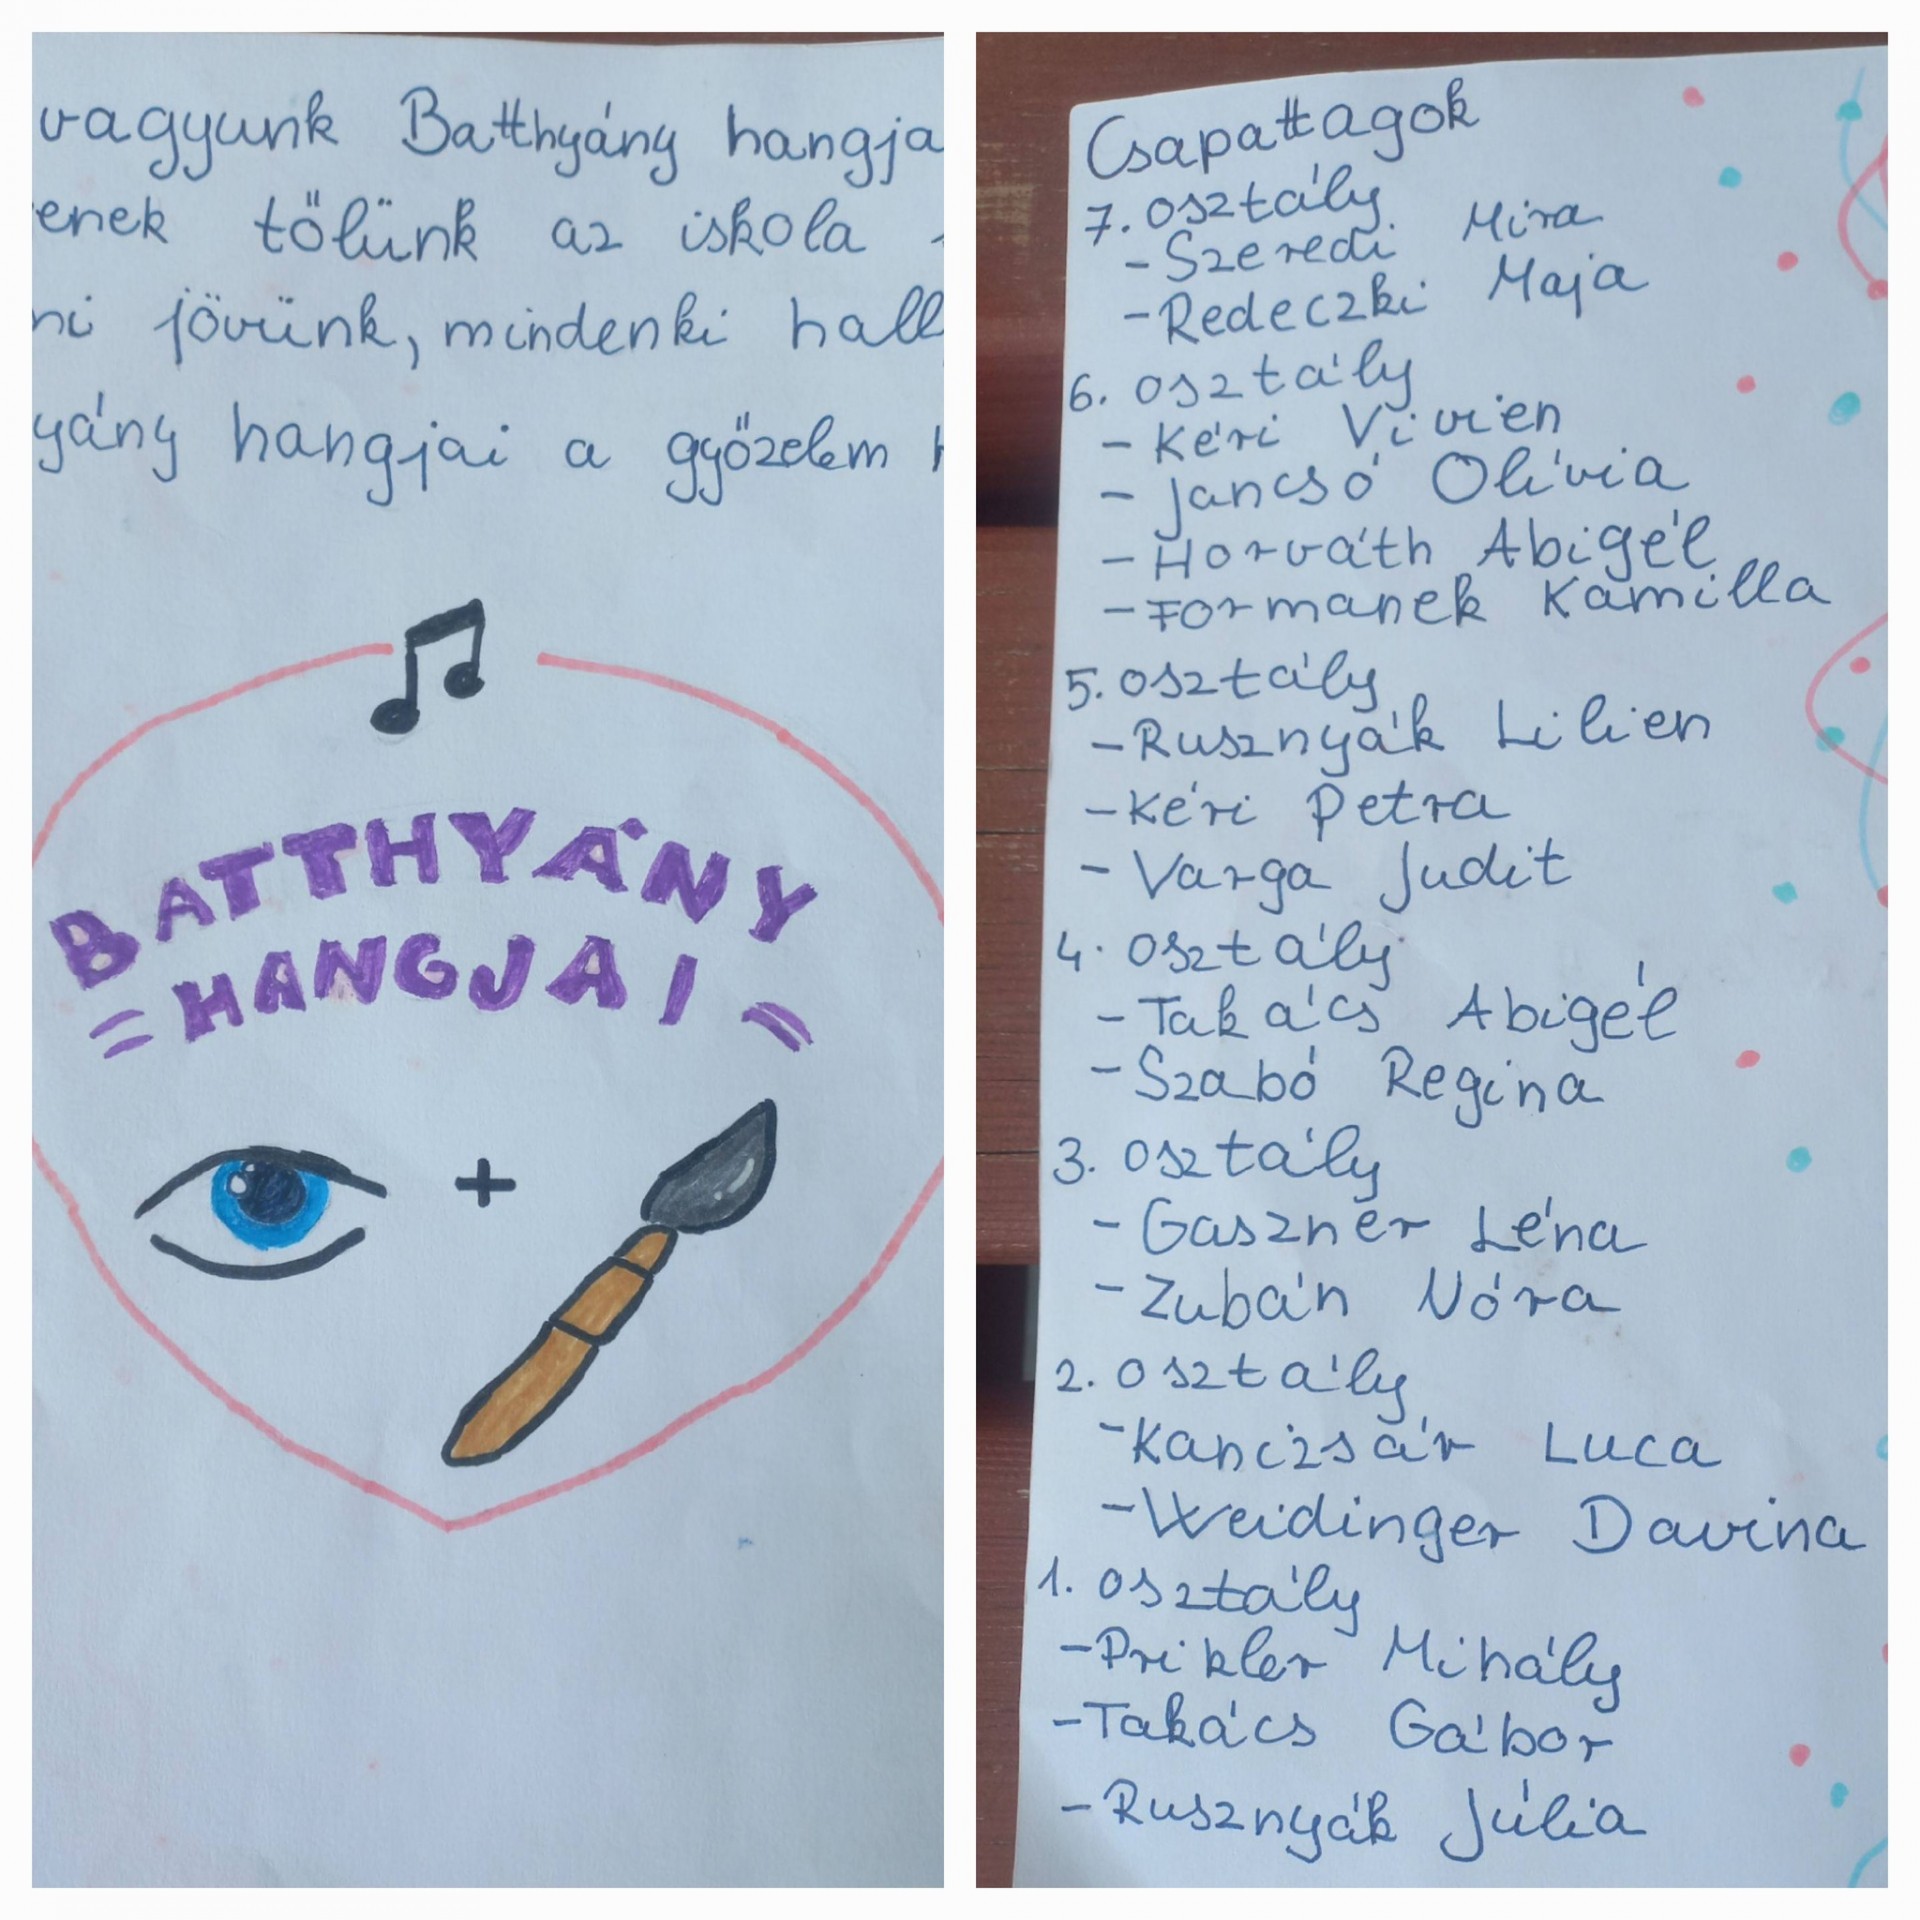 vagyunk Batthyány hangja
enek tőlünk az iskola
ni jövünk, mindenki hall
yány hangjai a győzelem
BATTHYÁNY
=HANGJAI=
+
Csapattagok
7. osztály
- Szeredi Mira
- Redeczki Maja
6. osztály
- Kéri Vivien
- Jancsó Olívia
- Horváth Abigél
- Formanek Kamilla
5. osztály
- Rusznyák Lilien
- Kéri Petra
- Varga Judit
4. osztály
- Takács Abigél
- Szabó Regina
3. osztály
- Gaszner Léna
- Zubán Nóra
2. osztály
- Kanczsár Luca
- Weidinger Davina
1. osztály
- Prikler Mihály
- Takács Gábor
- Rusznyák Júlia